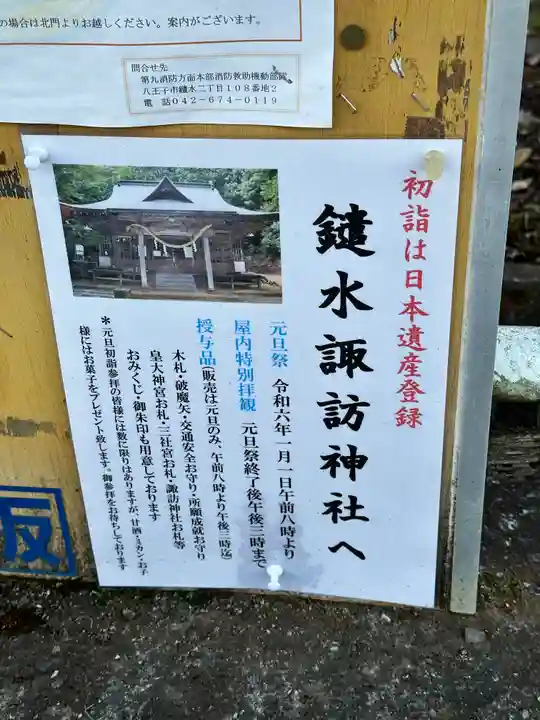 の場合は北門よりお越しください。案内がございます。
問合せ先
第九消防方面本部消防救助機動部隊
八王子市鑓水二丁目108番地2
電 話 042-674-0119
初詣は日本遺産登録
鑓水諏訪神社へ
元旦祭 令和六年一月一日午前八時より
屋内特別拝観 元旦祭終了後午後三時まで
授与品(販売は元旦のみ、午前八時より午後三時迄)
木札・破魔矢・交通安全お守り・所願成就お守り
皇大神宮お札・三社宮お札・諏訪神社お札等
おみくじ・御朱印も用意しております
*元旦初詣参拝の皆様には数に限りはありますが、甘酒・ミカン・お子
様にはお菓子をプレゼント致します。御参拝をお待ちしております